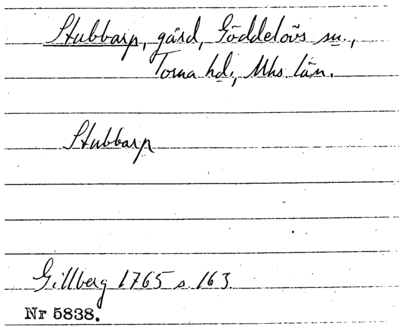 Stubbarp, gård, Göddelövs sn.,
Torna hd., Mhs län.
Stubbarp
Gillberg 1765 s. 163
Nr 5838.